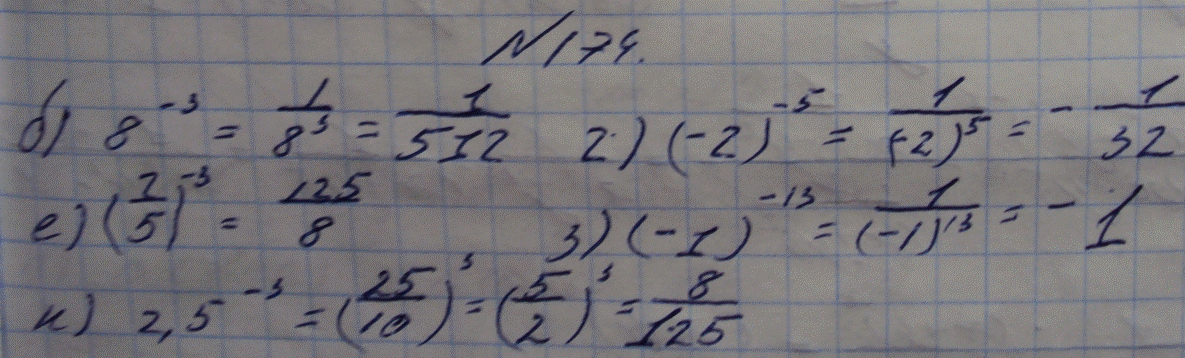 №174.
б) 8^-3 = 1/8^3 = 1/512 г) (-2)^-5 = 1/(-2)^5 = - 1/32
е) (2/5)^-3 = 125/8 з) (-1)^-13 = 1/(-1)^13 = - 1
к) 2,5^-3 = (25/10)^3 = (5/2)^3 = 8/125